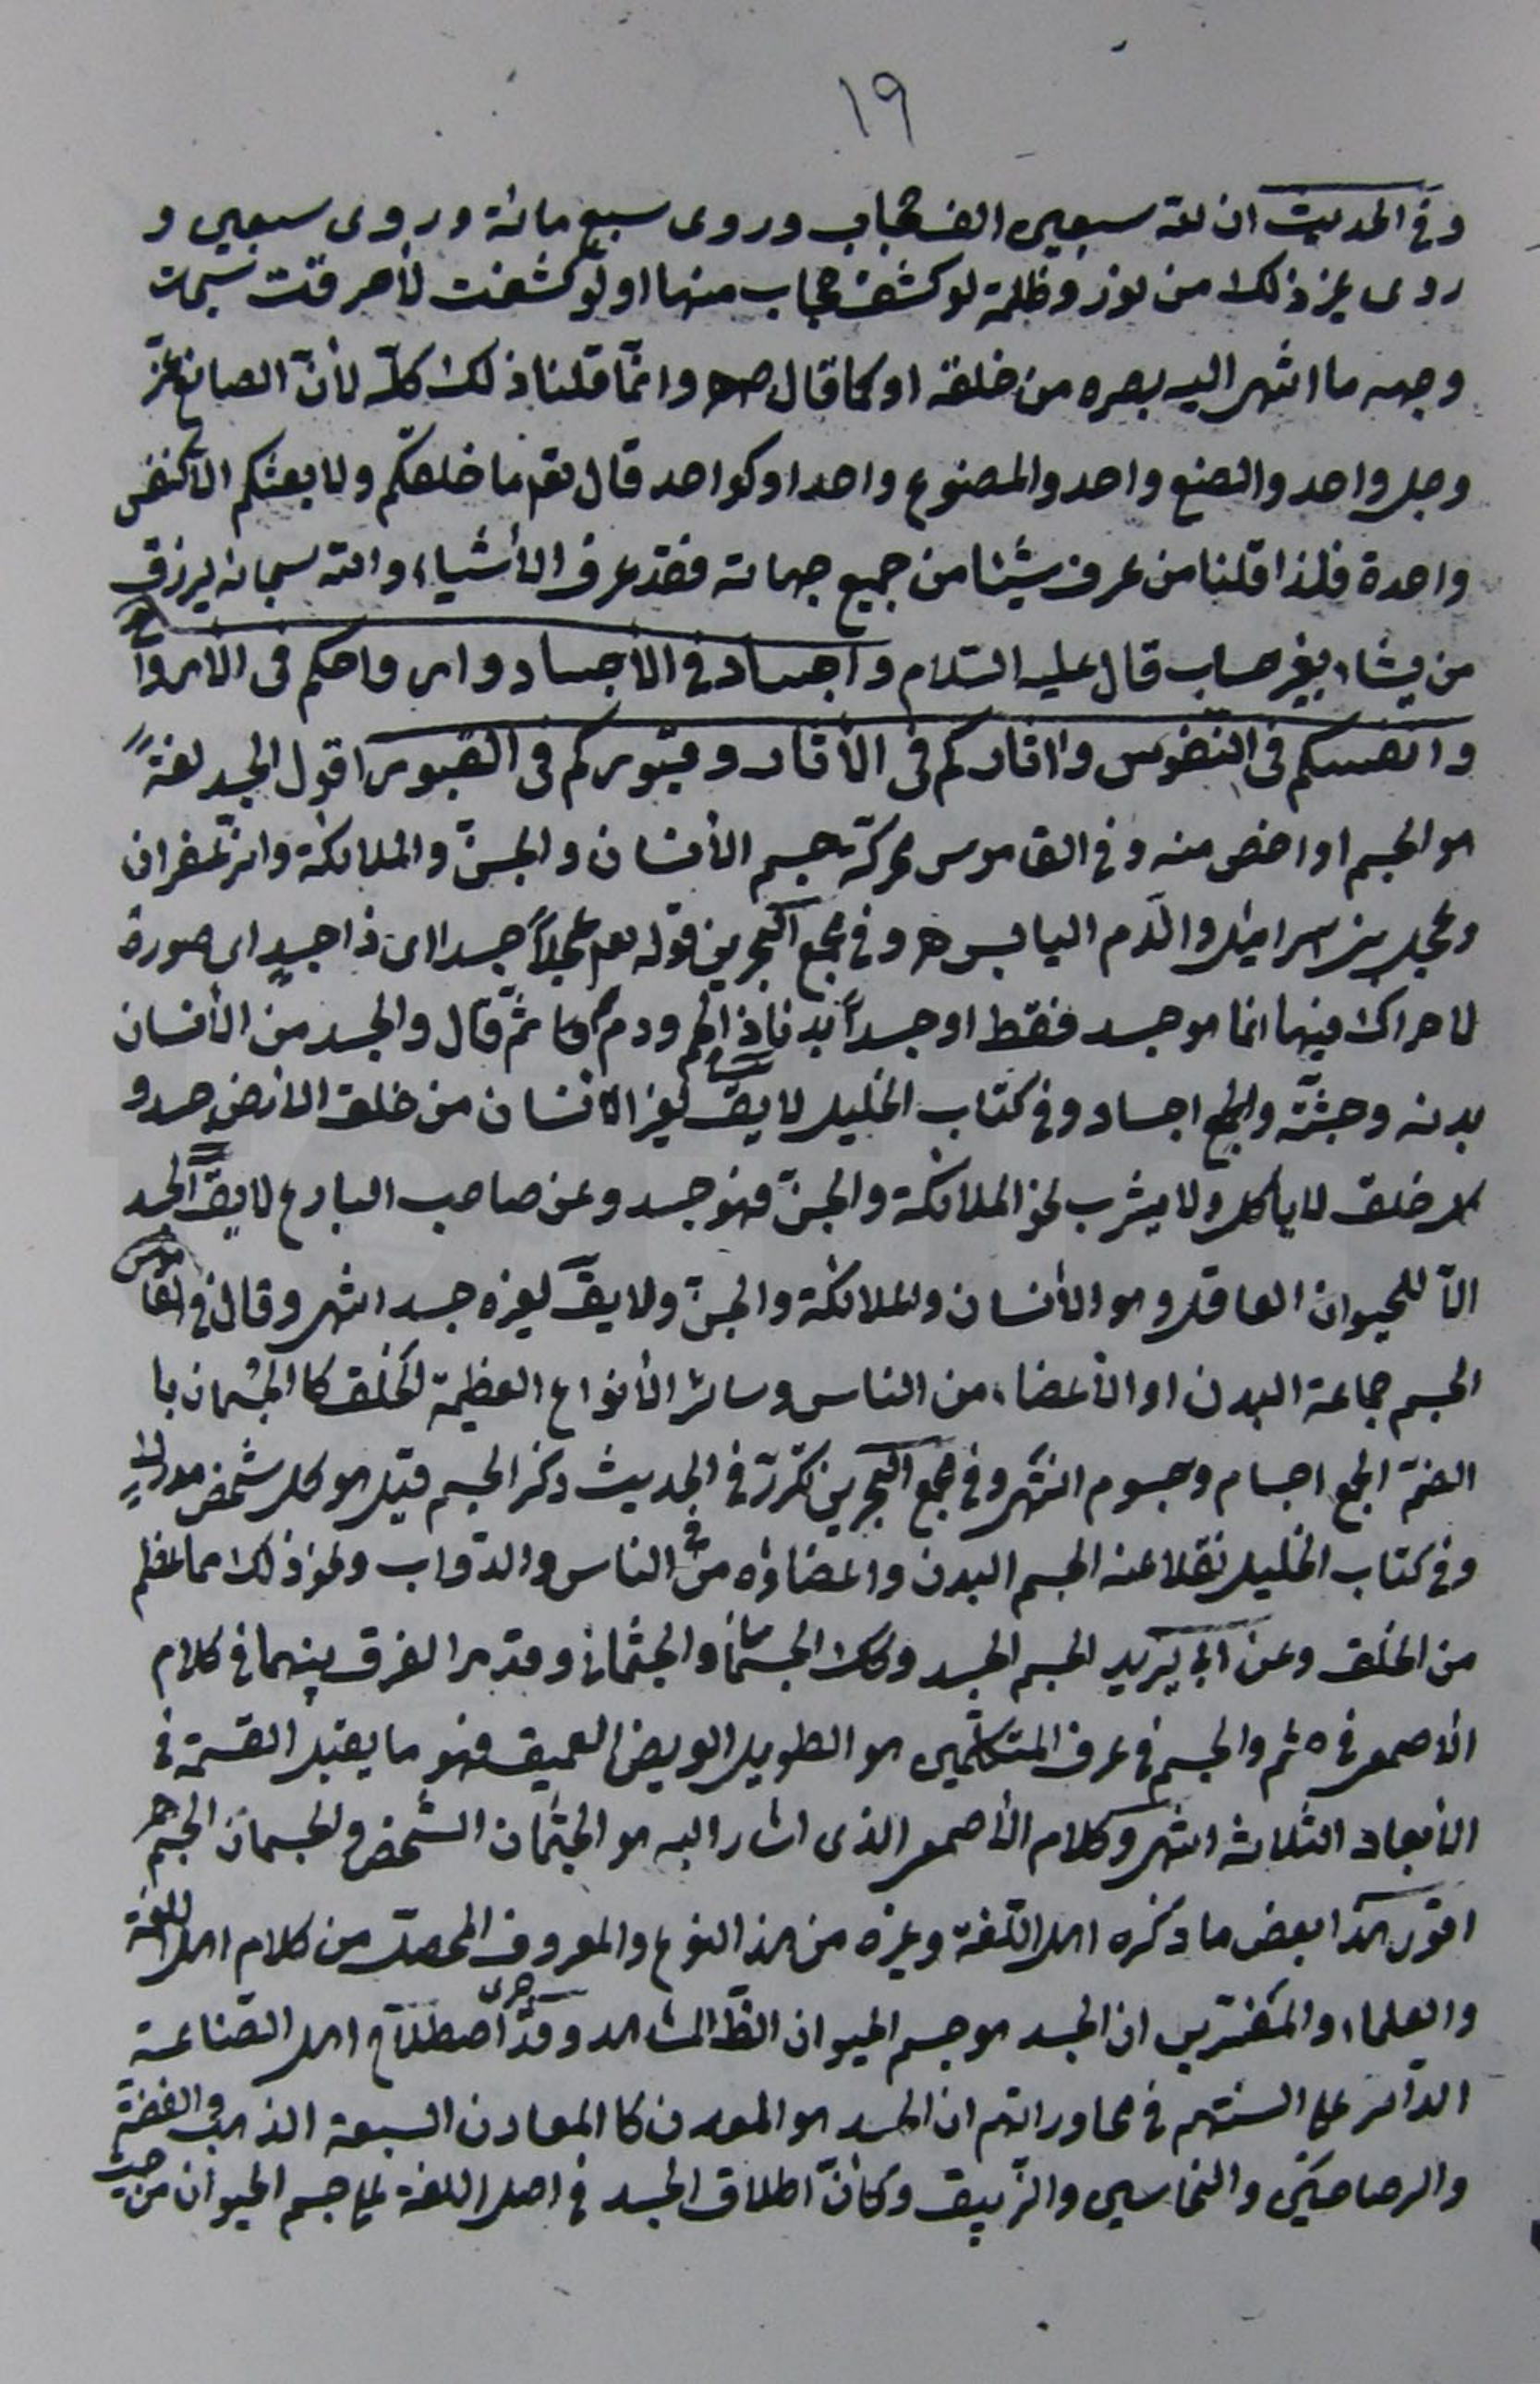 ١٩
وفي الحديث ان لله سبعين الف حجاب وروى سبع مائة وروى سبعين و
روى غير ذلك من نور وظلمة لو كشف حجاب منها او لو كشفت لأحرقت سبحات
وجهه ما انتهى اليه بصره من خلقه او كما قال ص وانّما قلنا ذلك كلّه لأنّ الصانع عزّ
وجل واحد والصنع واحد والمصنوع واحد او كواحد قال تع ما خلقكم ولا بعثكم الّا كنفس
واحدة فلذا قلنا من عرف شيئا من جميع جهاته فقد عرف الأشياء والله سبحانه يرزق
من يشاء بغير حساب قال عليه السّلام واجسادكم في الأجساد وارواحكم في الارواح
وانفسكم في النفوس واثاركم في الأثار وقبوركم في القبور اقول الجسد لغةً
هو الجسم او اخص منه وفي القاموس محركة جسم الأنسان والجنّ والملائكة والزعفران
وعجل بني اسرائيل والدّم اليابس وفي مجع البحرين قوله تع عجلاً جسدا اى ذا جسدٍ اى صورة
لا حراك فيها انما هو جسد فقط او جسداً بدنا ذا لحم ودم ثمّ قال والجسد من الأنسان
بدنه وجثّته والجمع اجساد وفي كتاب الخليل لا يقّ لغير الانسان من خلق الارض جسد و
كل خلق لا يأكل ولا يشرب نحو الملائكة والجنّ فهو جسد وعن صاحب البارع لا يقّ الجسد
الّا للحيوان العاقل وهو الأنسان والملائكة والجنّ ولا يقّ لغيره جسد انتهى وقال في القاموس
الجسم جماعة البدن او الأعضاء من الناس وسائر الأنواع العظيمة الخلق كالجُسْمان با
لضمّ الجمع اجسام وجسوم انتهى وفي مجع البحرين تكرّر في الحديث ذكر الجسم قيل هو كل شخص مدرك
وفي كتاب الخليل نقلا عنه الجسم البدن واعضاؤه من الناس والدوّاب ونحو ذلك مما عظم
من الخلق وعن ابي زيد الجسم الجسد وكك الجسمان والجثمان وقد مر الفرق بينهما في كلام
الأصمعى في جثم والجسم في عرف المتكلّمين هو الطويل العريض العميق فهو ما يقبل القسمة في
الأبعاد الثلاثة انتهى وكلام الأصمعى الذى اشار اليه هو الجثمان الشخص والجسمان الجسم
اقول هذا بعض ما ذكره اهل اللّغة وغيره من هذا النوع والمعروف المحصّل من كلام اهل اللغة
والعلماء والمفسّرين ان الجسد هو جسم الحيوان الظّ المشاهد وقد جرى اصطلاح اهل الصّناعة
الدّائر على السنتهم في محاوراتهم ان الجسد هو المعدن كالمعادن السبعة الذهب والفضّة
والرصاصين والنحاسين والزّيبق وكأنّ اطلاق الجسد في اصل اللغة على جسم الحيوان من حيث